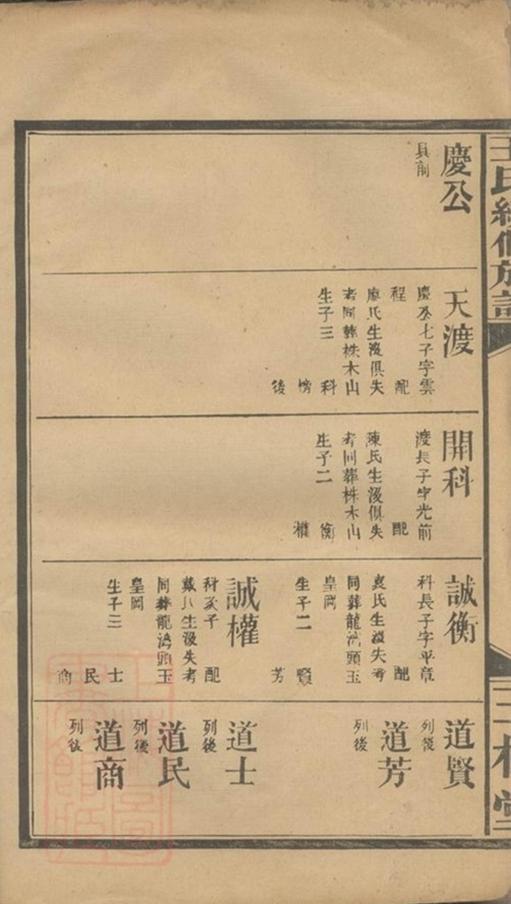 王氏續修族譜
三槐堂
慶公
具前
天渡
慶公七子字雲
程 配
廖氏生沒俱失
考同葬株木山
生子三 科
榜
後
開科
渡長子字光前
配
陳氏生沒俱失
考同葬株木山
生子二 衡
權
誠衡
科長子字平章
配
袁氏生沒失考
同葬龍灣頭玉
皇岡
生子二 賢
芳
誠權
科次子 配
戴氏生沒失考
同葬龍灣頭玉
皇岡
生子三 士
民
商
道賢
列後
道芳
列後
道士
列後
道民
列後
道商
列後